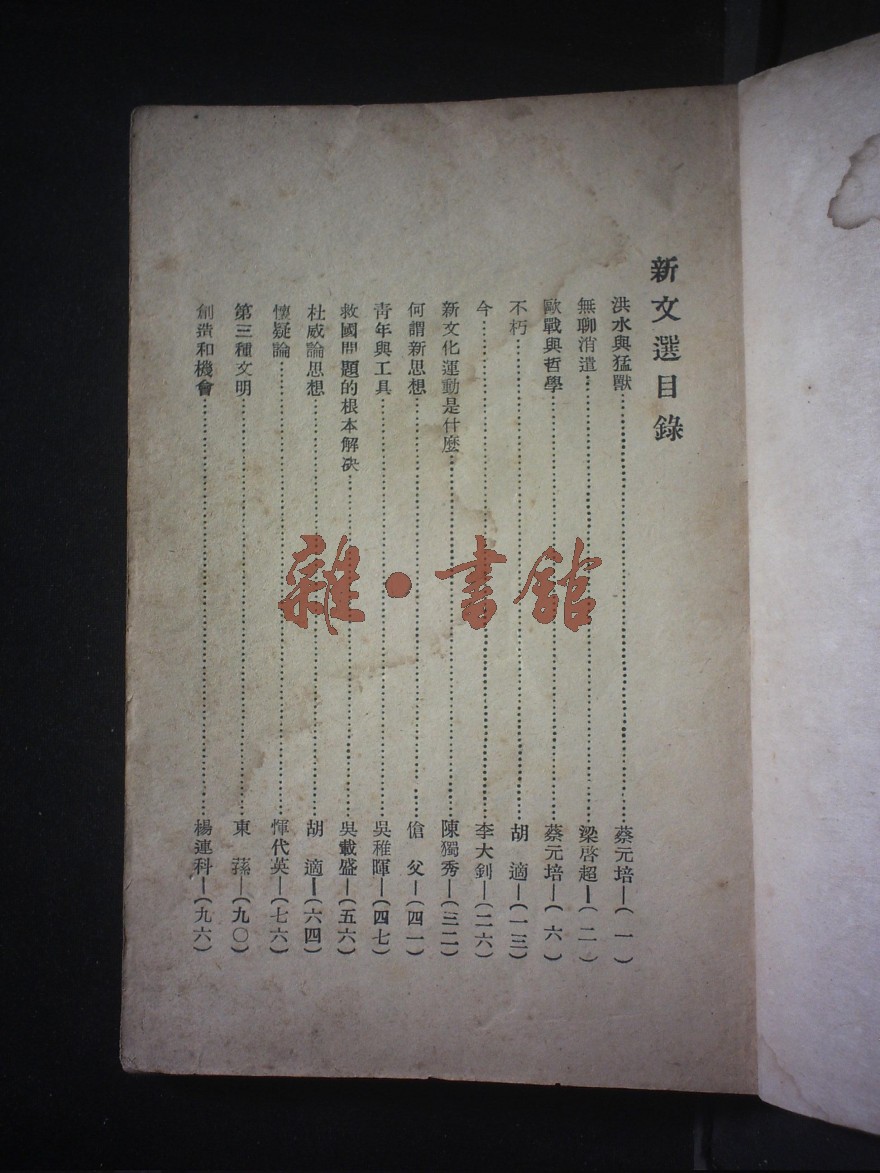 新文選目錄
洪水與猛獸……蔡元培—(一)
無聊消遣……梁啓超—(二)
歐戰與哲學……蔡元培—(六)
不朽……胡適—(一三)
今……李大釗—(二六)
新文化運動是什麼……陳獨秀—(三二)
何謂新思想……傖父—(四一)
靑年與工具……吳稚暉—(四七)
救國問題的根本解決……吳載盛—(五六)
杜威論思想……胡適—(六四)
懷疑論……惲代英—(七六)
第三種文明……東蓀—(九〇)
創造和機會……楊連科—(九六)
雜·書館